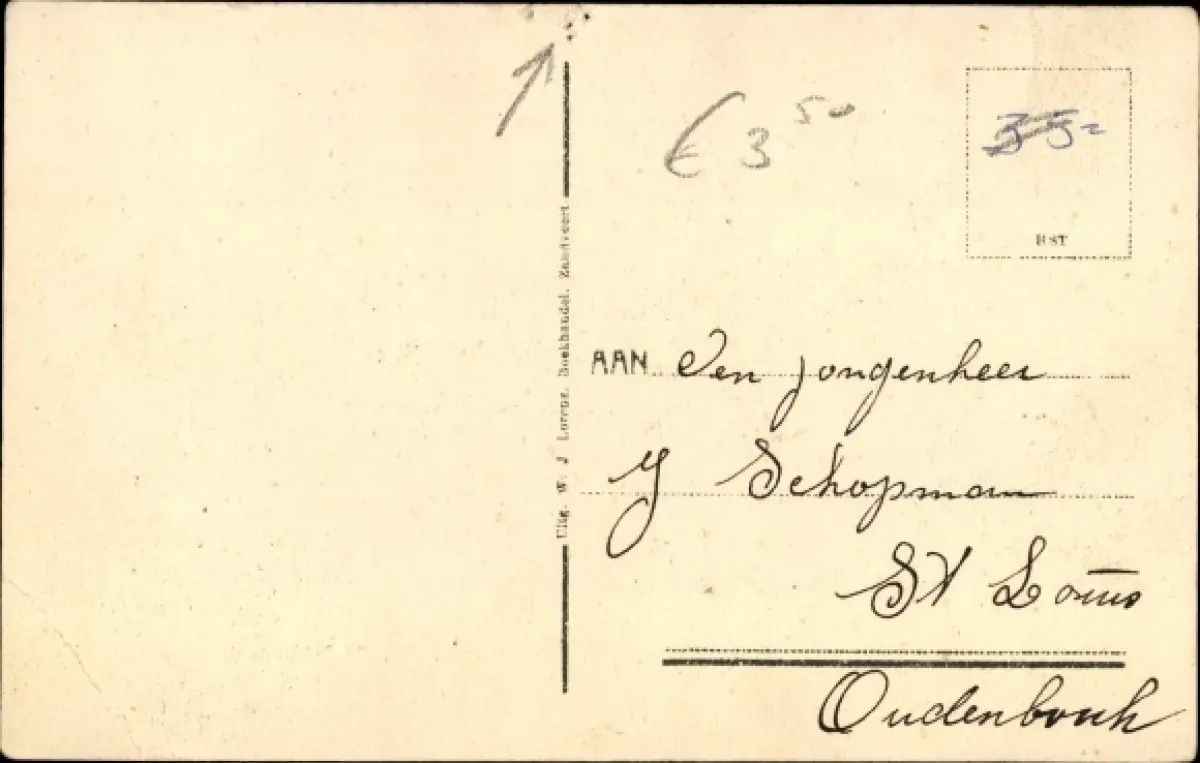 € 3 50
35=
Uitg. W. J Lorenz. Boekhandel. Zandvoort
AAN Den jongenheer
J Schopman
St Louis
Oudenbosch